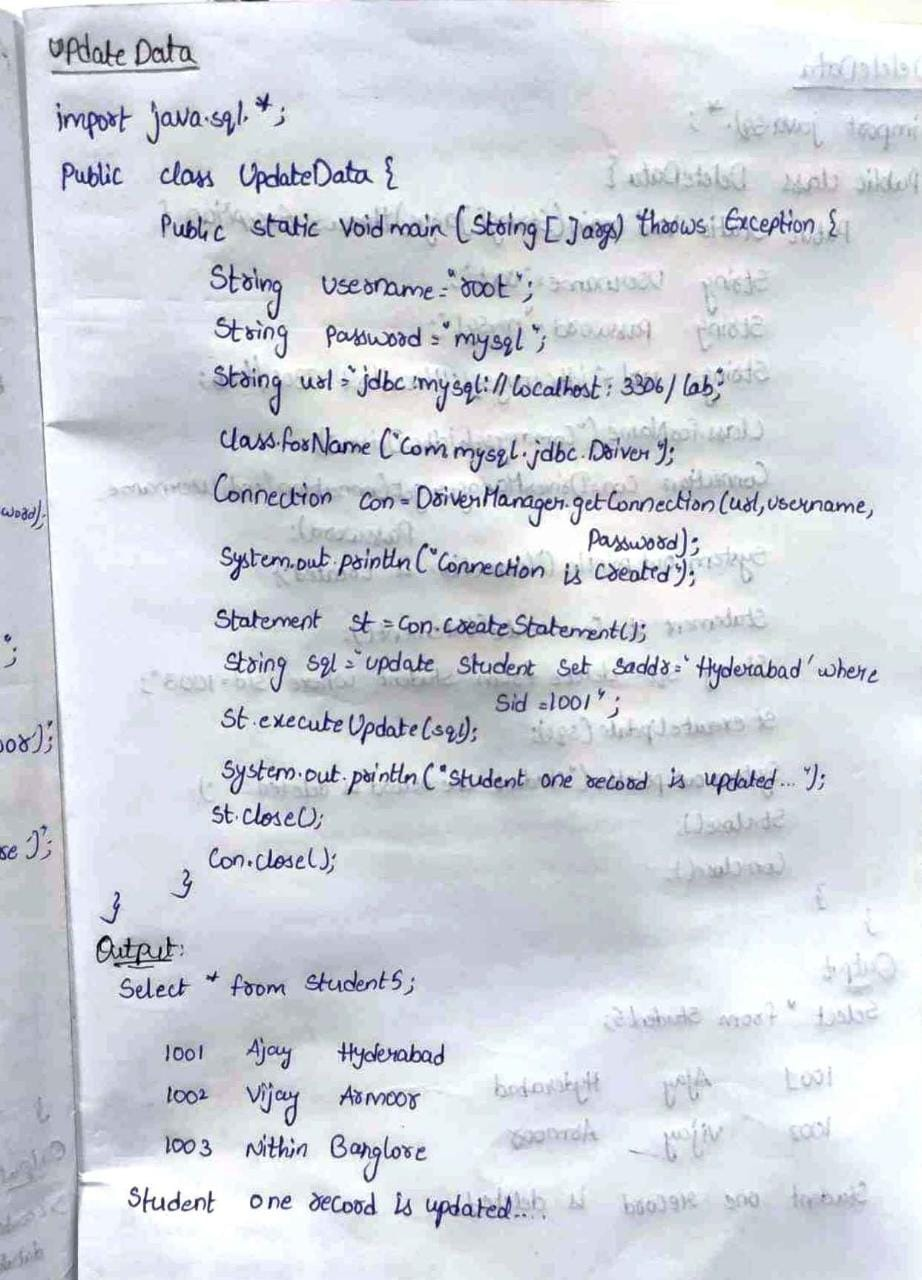 Update Data
import java.sql.*;
Public class UpdateData {
Public static void main (String [] args) throws Exception {
String username="root";
String password="mysql";
String url="jdbc:mysql://localhost:3306/lab;
class.forName ("com mysql.jdbc.Driver");
word);
Connection con=DriverManager.getConnection(url,username,
Password);
System.out.println("Connection is created");
Statement st=con.createStatement();
;
String sql="update student set saddr='Hyderabad' where
Sid=1001";
st.executeUpdate(sql);
System.out.println("Student one record is updated...");
st.close();
se )";
Con.close();
}
}
Output:
Select * from student5;
1001 Ajay Hyderabad
1002 Vijay Armoor
1003 Nithin Banglore
Student one record is updated....